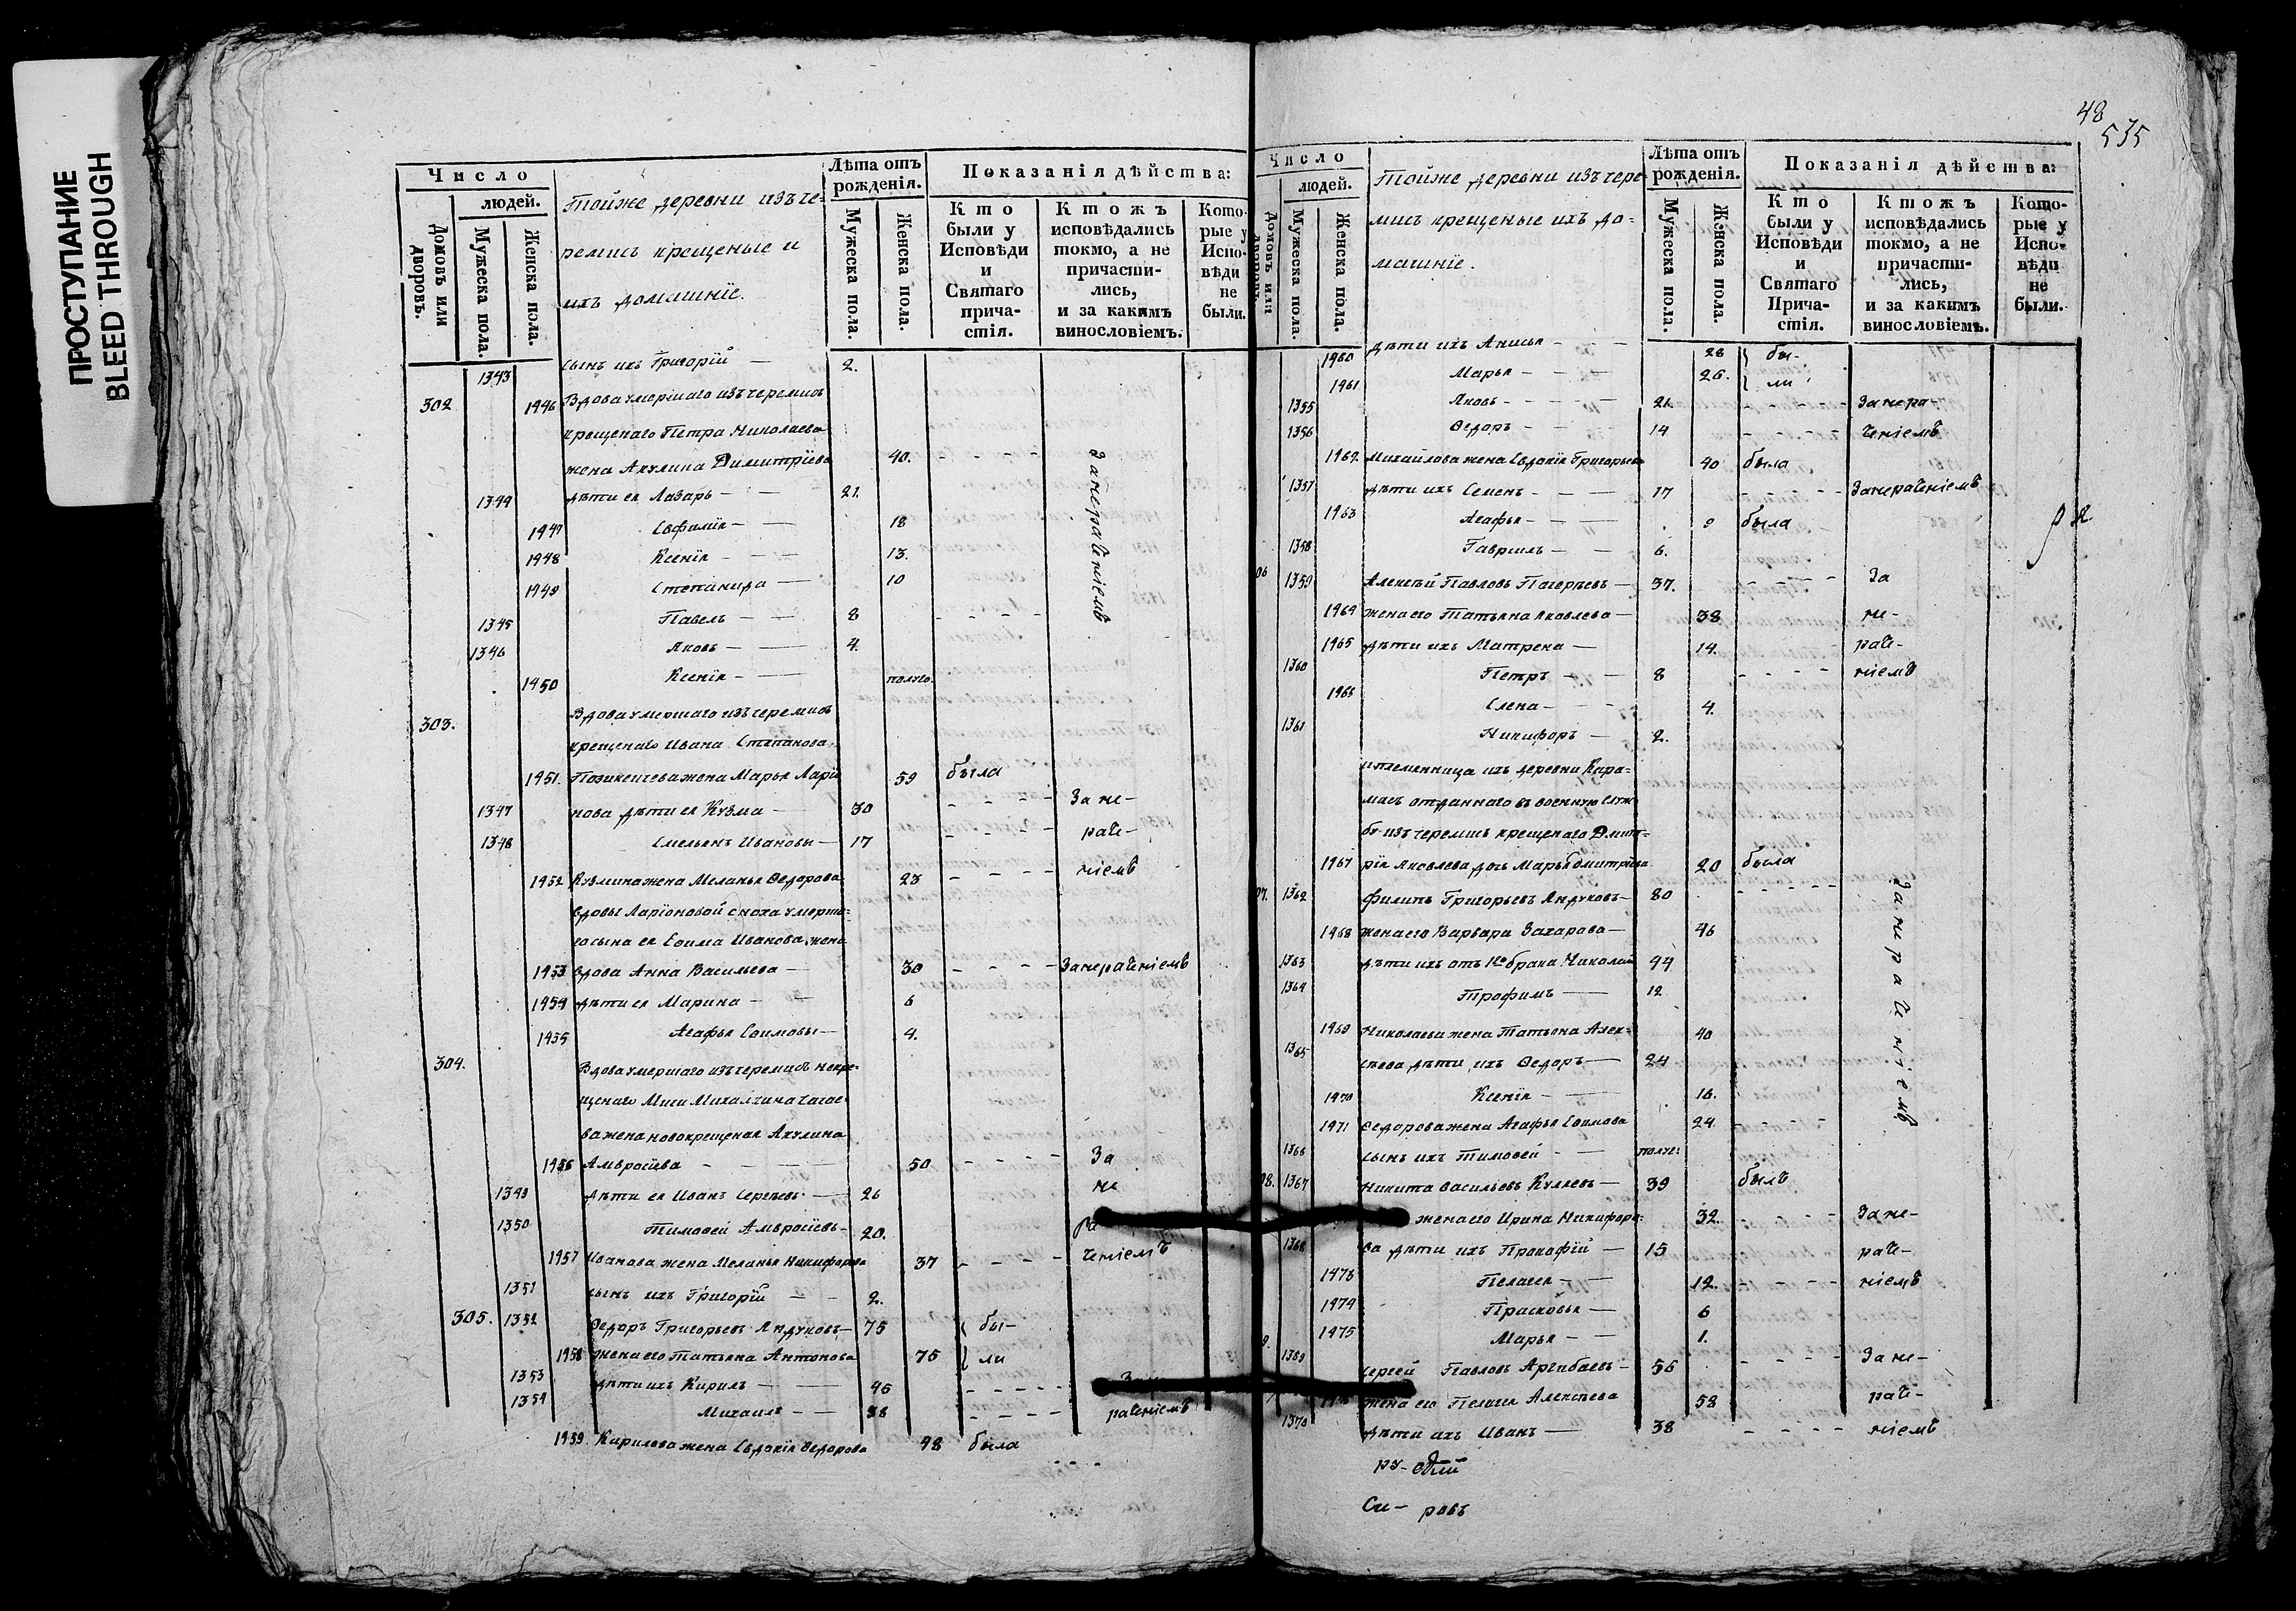 ПРОСТУПАНИЕ
BLEED THROUGH
Число
людей.
Домовъ или дворовъ.
Мужеска пола.
Женска пола.
Тойже деревни изъ че-
ремисъ крещеные и
ихъ домашніе.
Лѣта отъ рожденія.
Мужеска пола.
Женска пола.
Показанія дѣйства:
Кто были у Исповѣди и Святаго прича- стія.
Ктожъ исповѣдались токмо, а не причасти- лись, и за какимъ винословіемъ.
Кото- рые у Испо- вѣди не были.
1343 сынъ ихъ Григорій 2.
302 1946 Вдова умершаго изъ черемисъ
крещенаго Петра Николаева
жена Акулина Димитріева 40. Занераченіемъ
1344 дѣти ея Лазарь 21.
1947 Евфимія 18
1948 Ксенія 13.
1949 Степанида 10
1345 Павелъ 8
1346 Яковъ 4.
1950 Ксенія полуго.
303. Вдова умершаго изъ черемисъ
крещенаго Ивана Степанова
1951. жена Марья Ларіо 59 была
1347 нова дѣти ея Кузма 30 Зане-
1348 Емельянъ Ивановы 17 раче-
1952 Кузмина жена Меланья Ѳедорова 23 ніемъ
вдовы Ларіоновой сноха умерша-
го сына ея Ефима Иванова жена
1953 вдова Анна Васильева 30 Занераченіемъ
1954 дѣти ея Марина 6
1955 Агафья Ефимовы 4.
304. Вдова умершаго изъ черемисъ некре-
щенаго
ва жена новокрещеная Акулина
1956 Амвросіева 50 За
1349 дѣти ея Иванъ Сергѣевъ 26 не
1350 Тимофей Амвросіевъ 20. ра
1957 Иванова жена Меланья Никифорова 37 ченіемъ
1351 сынъ ихъ Григорій 2.
305. 1352 Ѳедоръ Григорьевъ Яндуковъ 75 бы-
1958 жена его Татьяна Антонова 75 ли
1353 дѣти ихъ Кирилъ 46 Зане
1354 Михаилъ 38 раченіемъ
1959 Кирилова жена Евдокія Ѳедорова 48 была
48
535
Число
людей.
Домовъ или дворовъ.
Мужеска пола.
Женска пола.
Тойже деревни изъ чере-
мисъ крещеные ихъ до-
машніе.
Лѣта отъ рожденія.
Мужеска пола.
Женска пола.
Показанія дѣйства:
Кто были у Исповѣди и Святаго Прича- стія.
Ктожъ исповѣдались токмо, а не причасти- лись, и за какимъ винословіемъ.
Кото- рые у Испо- вѣди не были.
1960 дѣти ихъ Анисья 28 бы-
1961 Марья 26. ли
1355 Яковъ 21. Занера-
1356 Ѳедоръ 14 ченіемъ
1962 Михайлова жена Евдокія Григорьева 40 была
1357 дѣти ихъ Семенъ 17 Занераченіемъ
1963 Агафья 9 была
1358 Гавриилъ 6.
06 1359 Алексѣй Павловъ 37. За
1964 жена его Татьяна Яковлева 38 не-
1965 дѣти ихъ Матрена 14. раче-
1360 Петръ 8 ніемъ
1966 Елена 4.
1361 Никифоръ 2.
племянница ихъ деревни Кара-
масъ отданнаго въ военную служ-
бу изъ черемисъ крещенаго Дмит-
1967 рія Яковлева дочь Марья Дмитріева 20 была
07. 1362 Филипъ Григорьевъ Яндуковъ 80 Занераченіемъ
1968 жена его Варвара Захарова 46
1363 дѣти ихъ отъ 1го брака Николай 44
1364 Трофимъ 12
1969 Николаева жена Татьяна Алек-
40
1365 сѣева дѣти ихъ Ѳедоръ 24
1970 Ксенія 16.
1971 Ѳедорова жена Агафья Ефимова 24
1366 сынъ ихъ Тимофей полуг.
08. 1367 Никита Васильевъ Куляевъ 39 былъ
жена его Ирина Никифоро- 32. Зане-
1368 ва дѣти ихъ Прокофій 15 раче-
1973 Пелагея 12 ніемъ
1974 Прасковья 6
1975 Марья 1.
9. 1369 Сергей Павловъ 56 Зане-
жена его Пелагея Алексѣева 58 раче-
1370 дѣти ихъ Иванъ 38 ніемъ